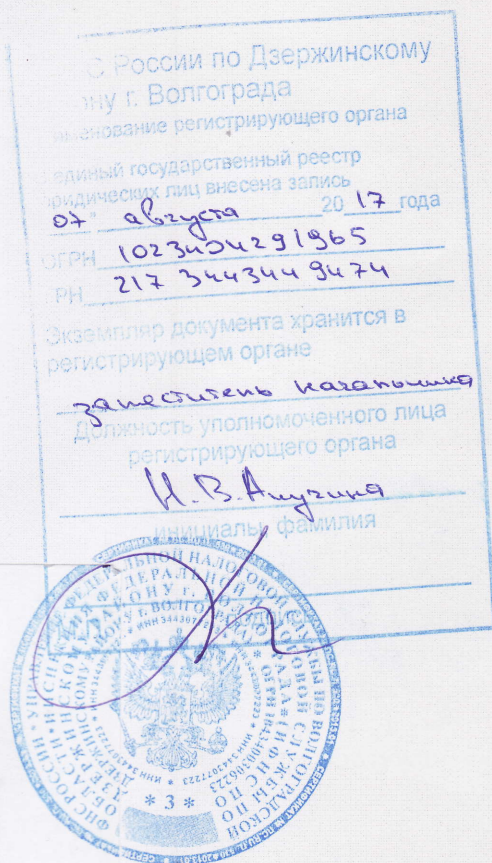 С России по Дзержинскому
ну г. Волгограда
менование регистрирующего органа
единый государственный реестр
ридических лиц внесена запись
07 " августа 20 17 года
ОГРН 1023404291965
РН 217 344344 9474
Экземпляр документа хранится в
регистрирующем органе
заместитель начальника
Должность уполномоченного лица
регистрирующего органа
И.В.Анучина
инициалы, фамилия
ФНС РОССИИ
ФЕДЕРАЛЬНОЙ НАЛОГОВОЙ СЛУЖБЫ ПО ВОЛГОГРАДСКОЙ
ОБЛАСТИ
* 3 *